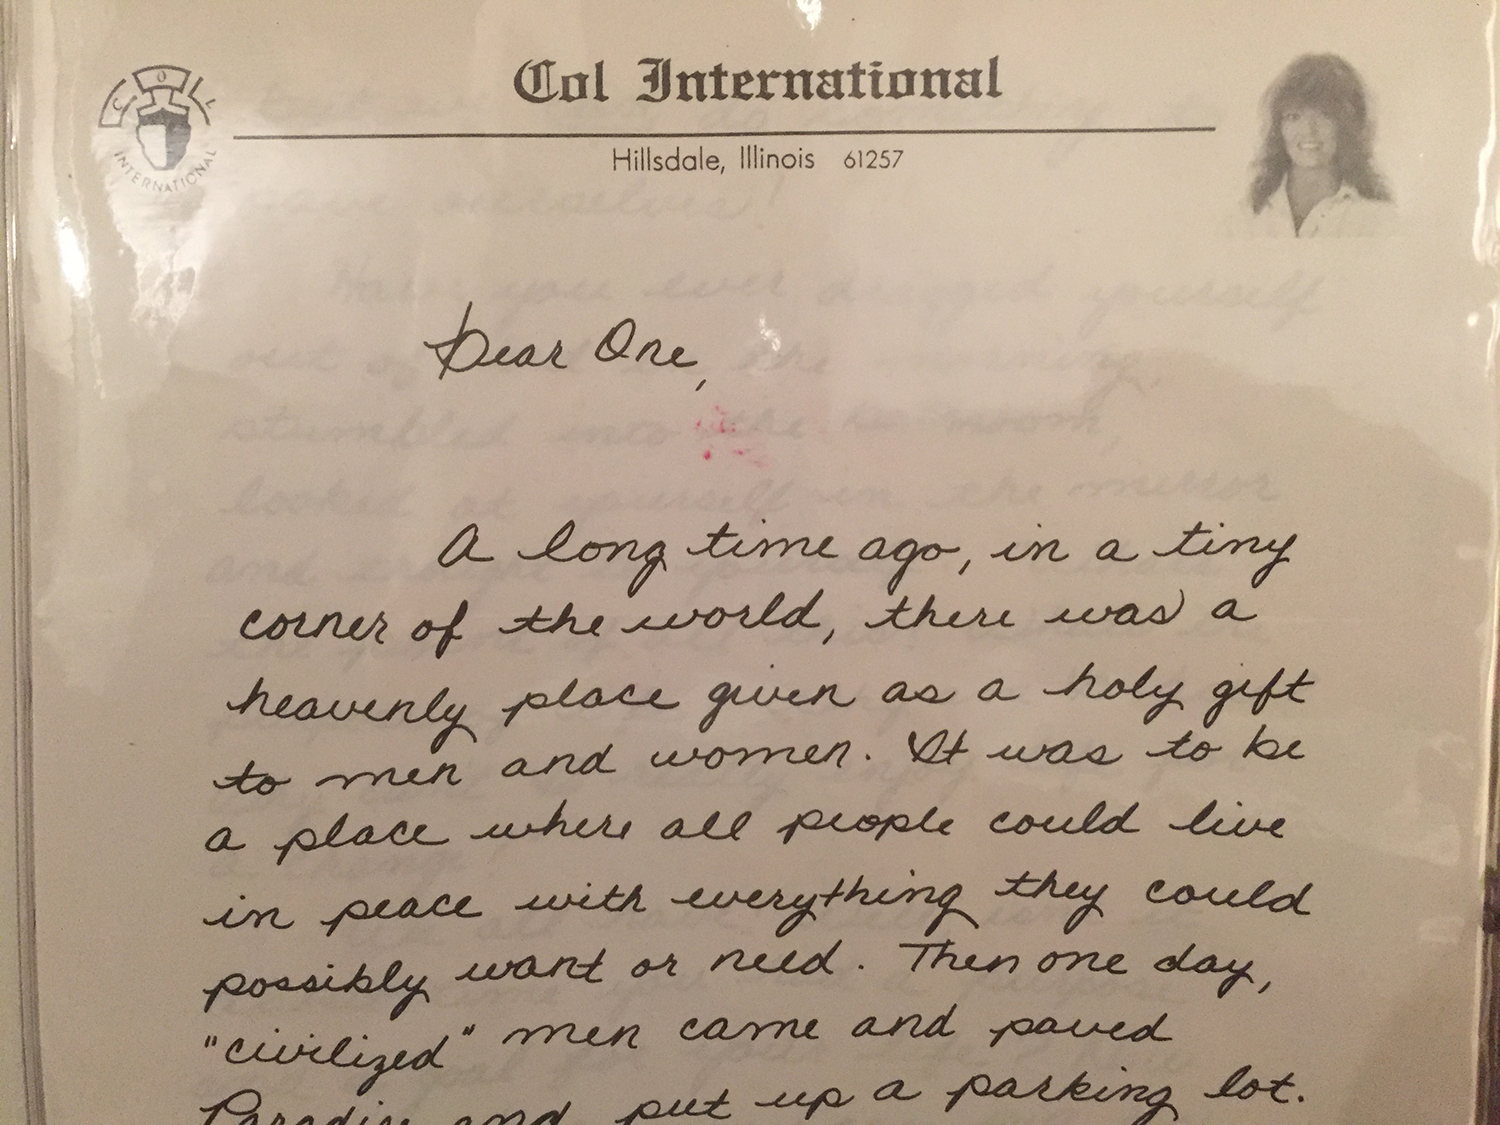 Col International
COL
INTERNATIONAL
Hillsdale, Illinois 61257
Dear One,
A long time ago, in a tiny
corner of the world, there was a
heavenly place given as a holy gift
to men and women. It was to be
a place where all people could live
in peace with everything they could
possibly want or need. Then one day,
"civilized" men came and paved
Paradise and put up a parking lot.